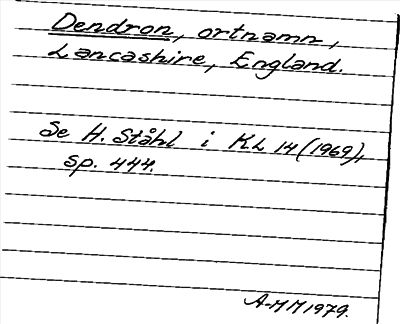 Dendron, ortnamn,
Lancashire, England.
Se H. Ståhl i KL 14 (1969),
sp. 444.
A-MM1979.